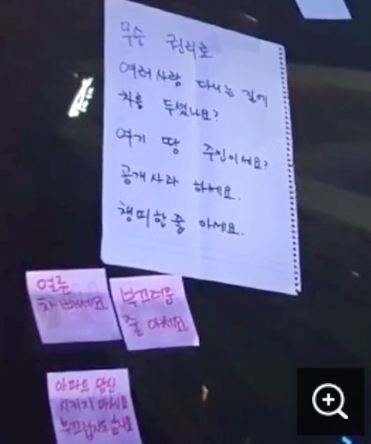 무슨 권리로
여러사람 다니는 길에
차를 두셨나요?
여기 땅 주인이세요?
공개사과 하세요.
챙피한줄 아세요.
얼른
차 빼세요
부끄러움
줄 아세요
아파트 망신
시키지 마세요
부끄럽지도 않나요